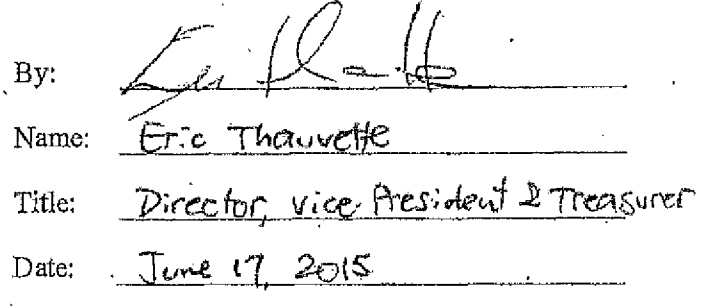 By: Eric Thauvette
Name: Eric Thauvette
Title: Director, vice President & Treasurer
Date: June 17, 2015